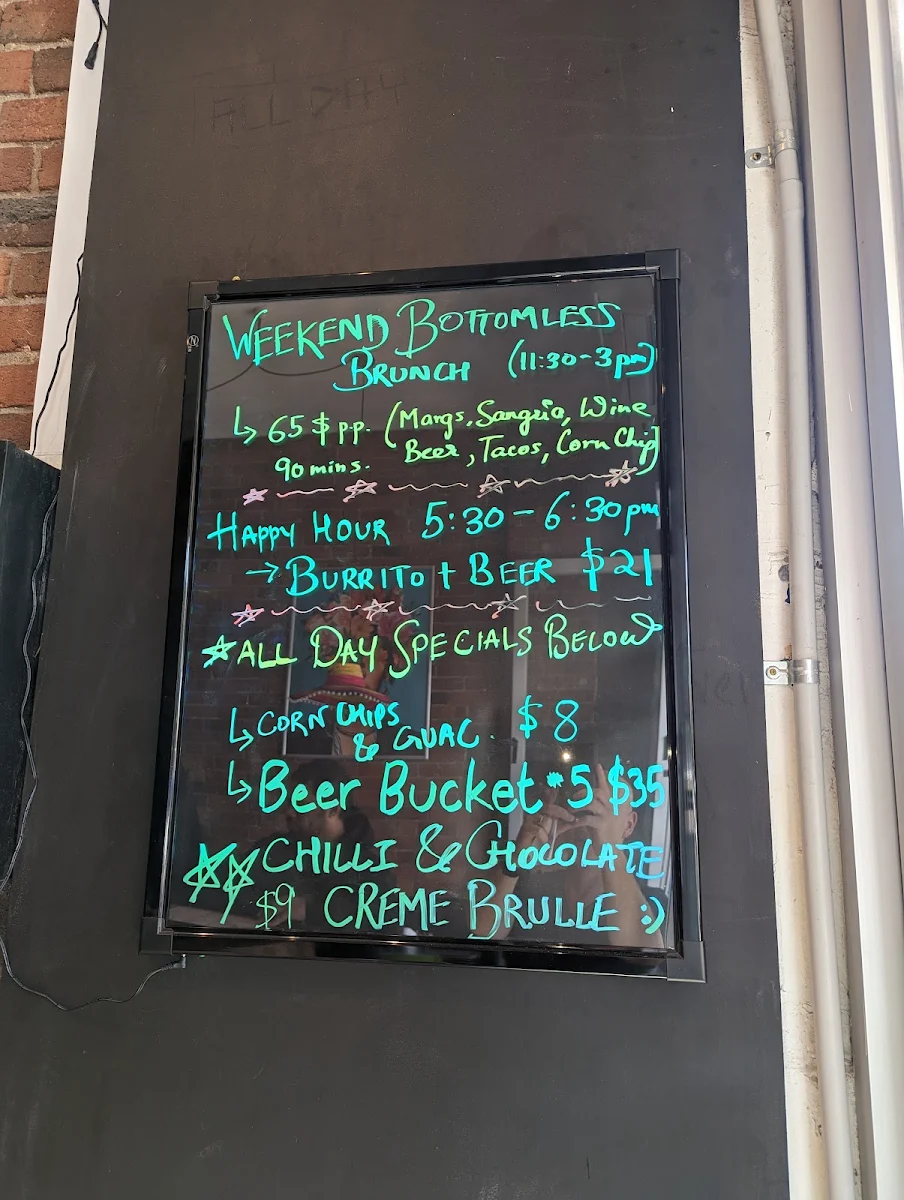 ALL DAY
WEEKEND BOTTOMLESS
BRUNCH (11:30-3pm)
↳ 65 $ pp. (Margs, Sangria, Wine
90 mins. Beer, Tacos, Corn Chip)
HAPPY HOUR 5:30 - 6:30pm
→ BURRITO + BEER $21
☆ ALL DAY SPECIALS BELOW
↳ CORN CHIPS
& GUAC. $8
↳ Beer Bucket *5 $35
☆☆ CHILLI & CHOCOLATE
$9 CREME BRULLE :)